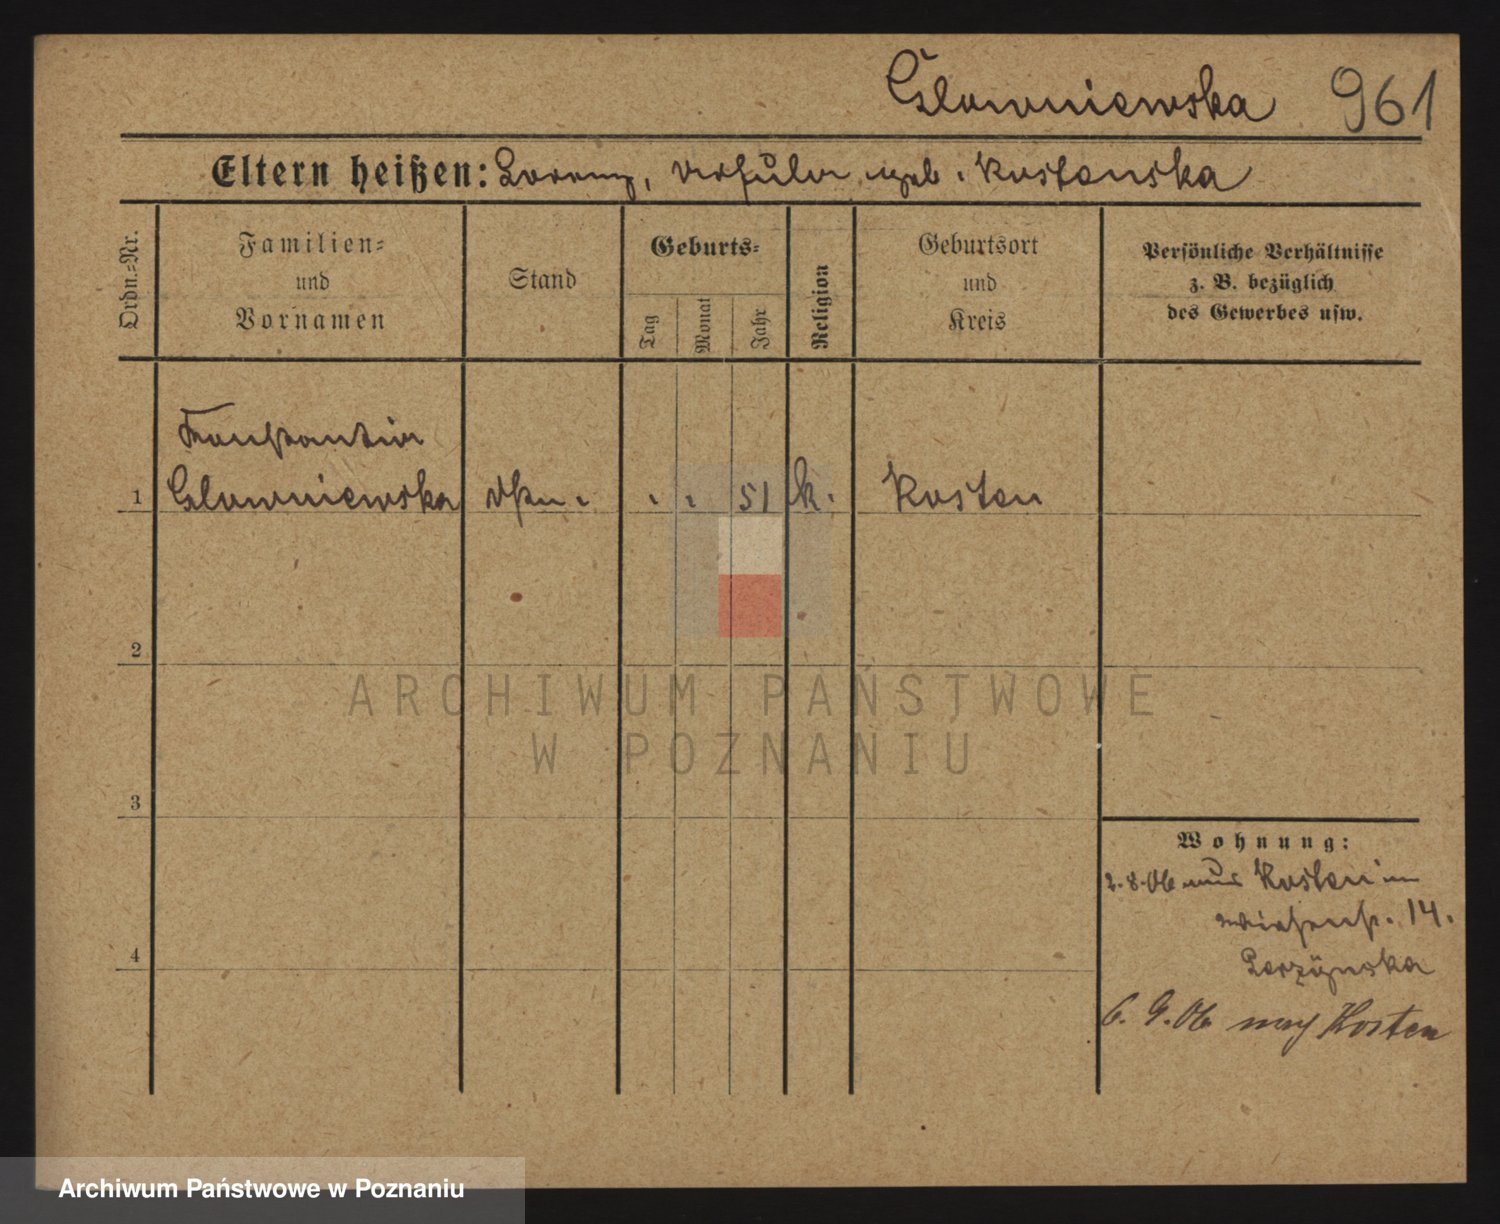 Glowniewska 961
Eltern heißen: Lorenz, Ursula geb. Kostanska
Ordn.=Nr.
Familien=
und
Vornamen
Stand
Geburts=
Tag
Monat
Jahr
Religion
Geburtsort
und
Kreis
Persönliche Verhältnisse
z. B. bezüglich
des Gewerbes usw.
Konstantia
1 Glowniewska 51 k. Kosten
2
3
4
Wohnung:
2.8.06 aus Kosten
Wiesenst. 14.
6. 9. 06 nach Kosten
ARCHIWUM PAŃSTWOWE
W POZNANIU
Archiwum Państwowe w Poznaniu